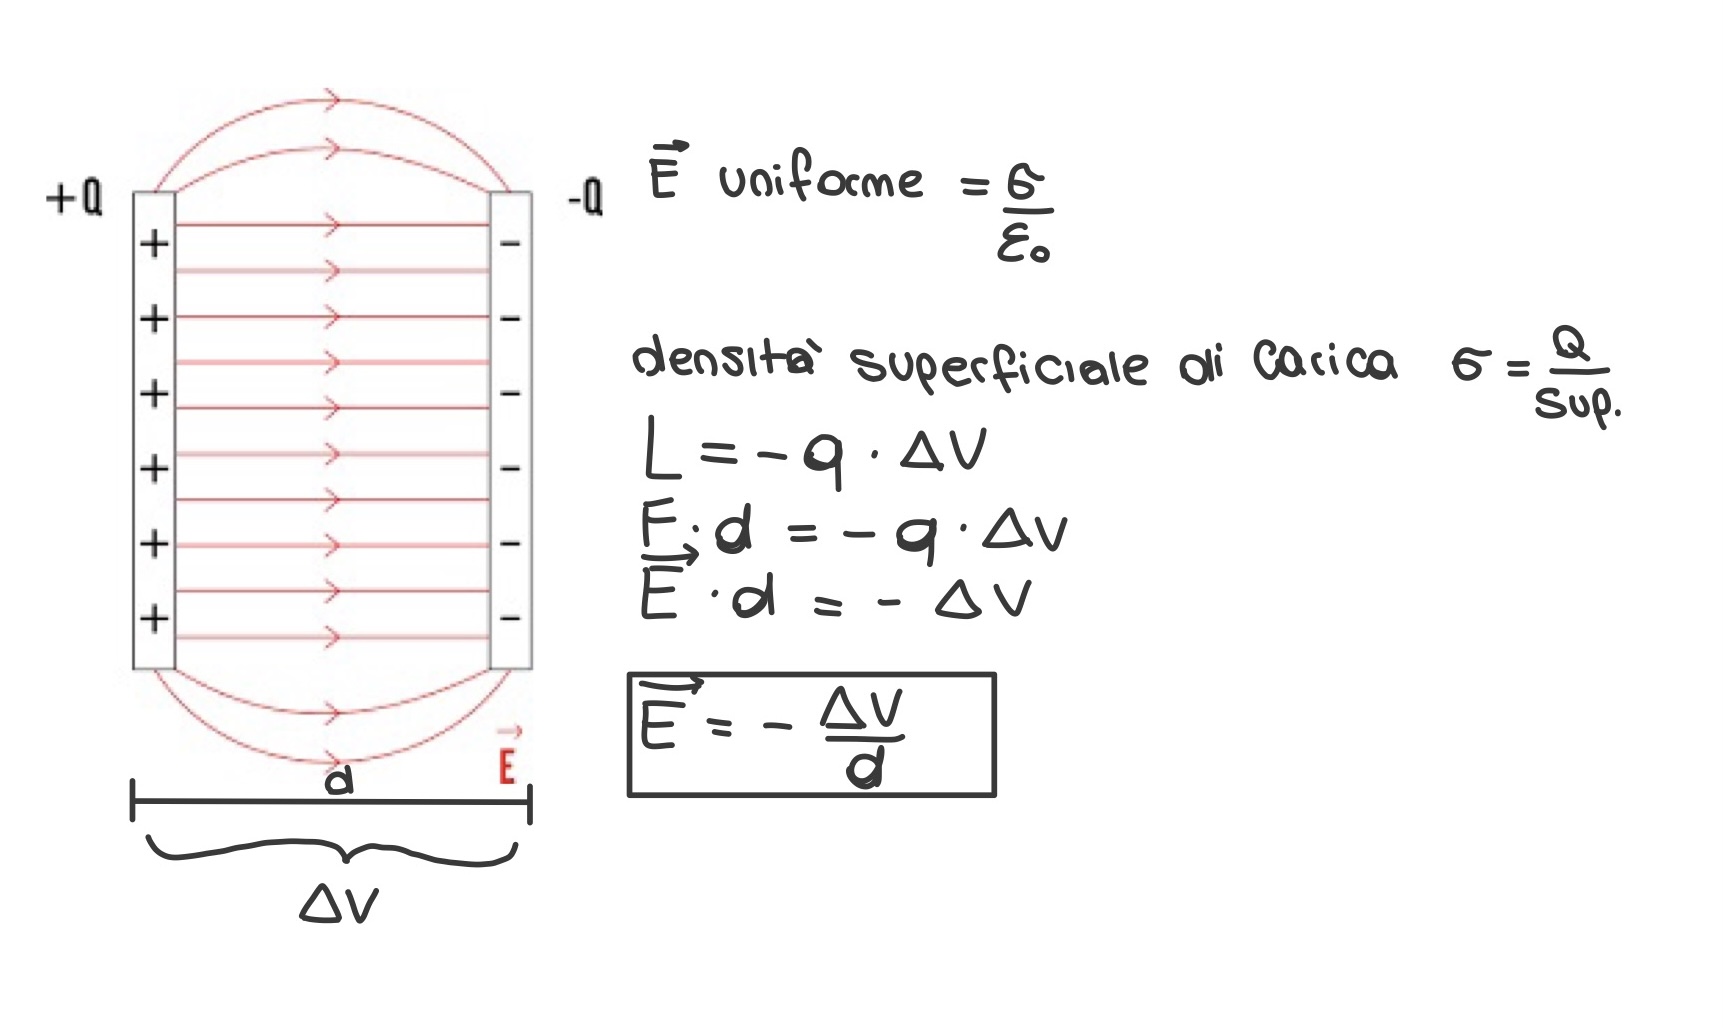 +Q
-Q
E⃗ uniforme = σ/ε₀
+ -
+ -
+ -
+ -
+ -
+ -
densità superficiale di carica σ = Q/Sup.
L = - q · ΔV
F · d = - q · ΔV
E⃗ · d = - ΔV
E⃗ = - ΔV/d
E⃗
d
ΔV